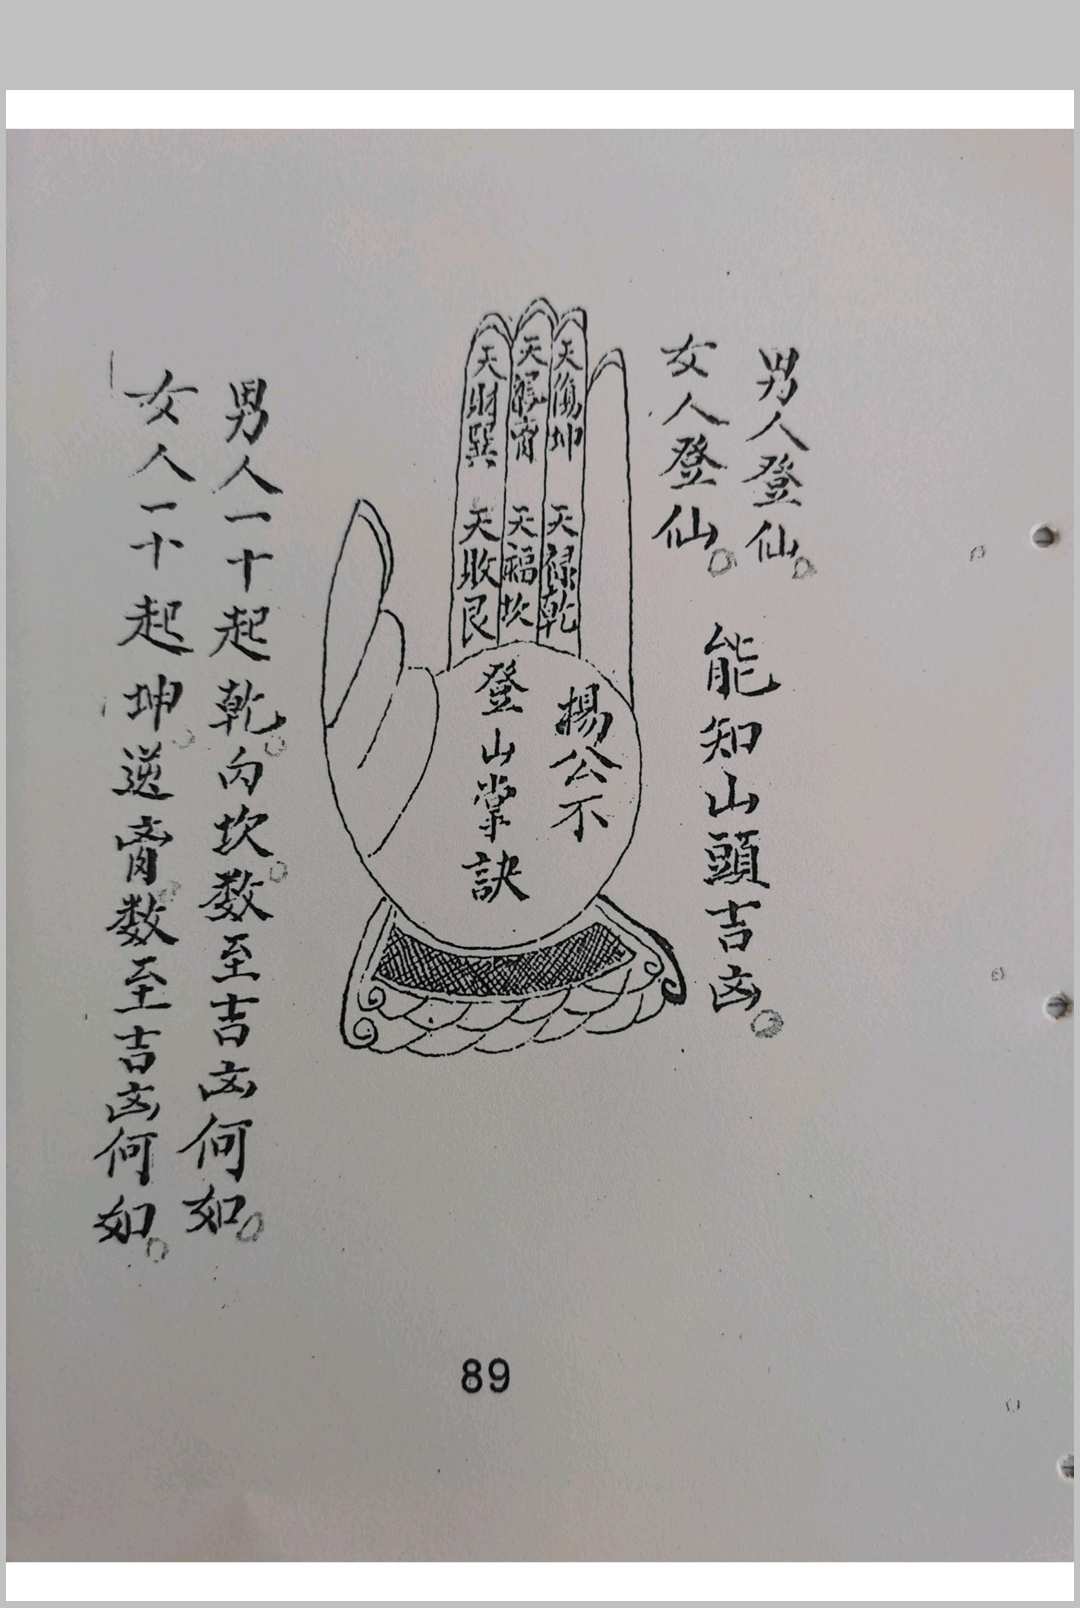 男人登仙。
女人登仙。
能知山頭吉凶。
天傷坤
天祿乾
天离
天福坎
天財巽
天敗艮
揚公不
登山掌訣
男人一十起乾。向坎。数至吉凶何如。
女人一十起坤。逆离。数至吉凶何如。
89